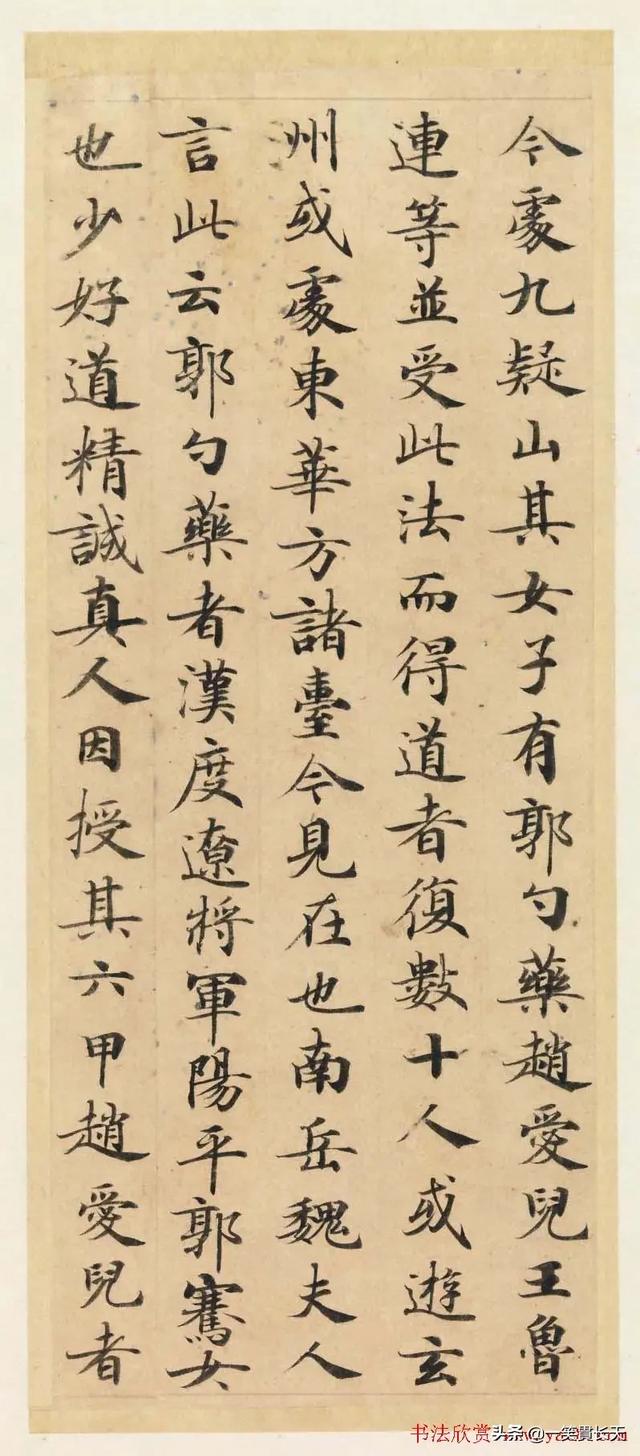 今䖏九疑山其女子有郭勺藥趙愛兒王魯
連等並受此法而得道者復數十人或遊玄
洲或䖏東華方諸臺今見在也南岳魏夫人
言此云郭勺藥者漢度遼將軍陽平郭騫女
也少好道精誠真人因授其六甲趙愛兒者
书法欣赏
头条@一笑贯长天